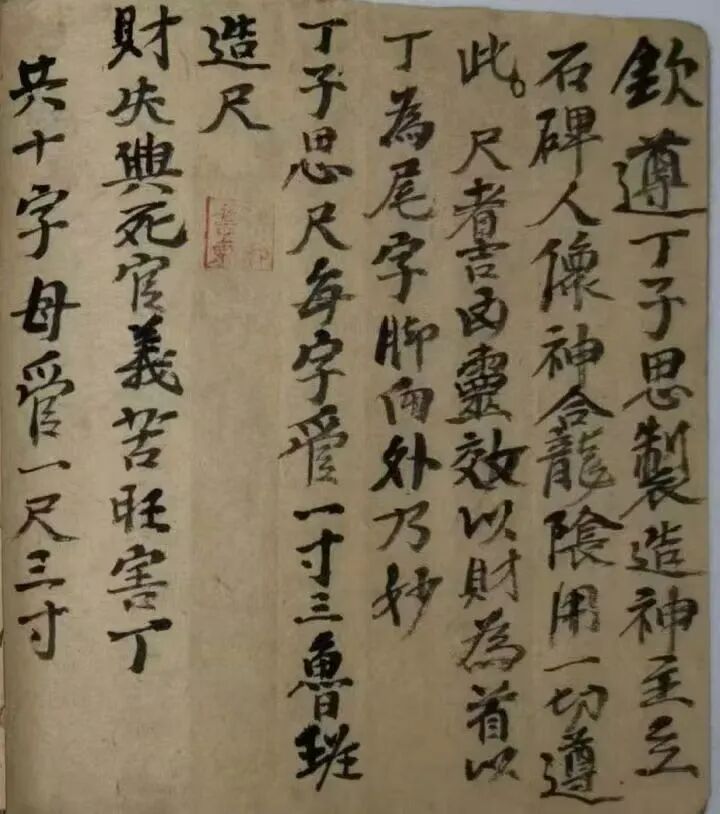 欽遵丁子思製造神主立
石碑人像神合龍隂用一切遵
此。尺者吉凶靈效以財為首以
丁為尾字脚向外乃妙
丁子思尺每字管一寸三魯班
造尺
財失興死官義苦旺害丁
共十字母管一尺三寸